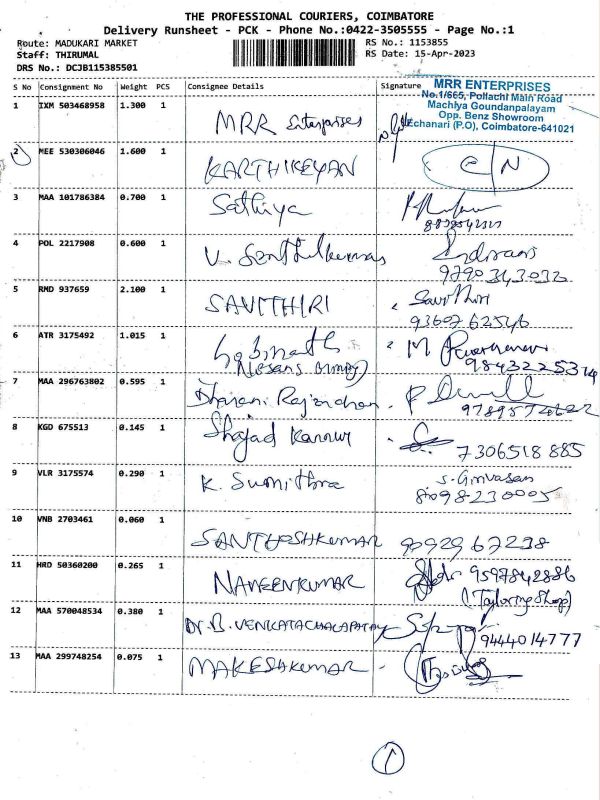 THE PROFESSIONAL COURIERS, COIMBATORE
Delivery Runsheet - PCK - Phone No.:0422-3505555 - Page No.:1
Route: MADUKARI MARKET RS No.: 1153855
Staff: THIRUMAL RS Date: 15-Apr-2023
DRS No.: DCJB115385501
S No Consignment No Weight PCS Consignee Details Signature
MRR ENTERPRISES
No.1/665, Pollachi Main Road
Machiya Goundanpalayam
Opp. Benz Showroom
Echanari (P.O), Coimbatore-641021
1 IXM 503468958 1.300 1 MRR Enterprises
2 MEE 530306046 1.600 1 KARTHIKEYAN
3 MAA 101786384 0.700 1 Sathiya
4 POL 2217908 0.600 1 V. Senthilkumar
9790343032
5 RMD 937659 2.100 1 SAVITHIRI Savithiri
9360762546
6 ATR 3175492 1.015 1 M
9843225374
7 MAA 296763802 0.595 1 Dharani Rajendran
8 KGD 675513 0.145 1 Shajad Kannur 7306518885
9 VLR 3175574 0.290 1 K. Sumithra S. Srinivasan
8098230005
10 VNB 2703461 0.060 1 SANTHOSHKUMAR 9092967238
11 HRD 50360200 0.265 1 NAVEENKUMAR 9597842886
(Tayloring Shop)
12 MAA 570048534 0.380 1 Dr. B. VENKATACHALAPATHY 9444014777
13 MAA 299748254 0.075 1 MAKESHKUMAR
1